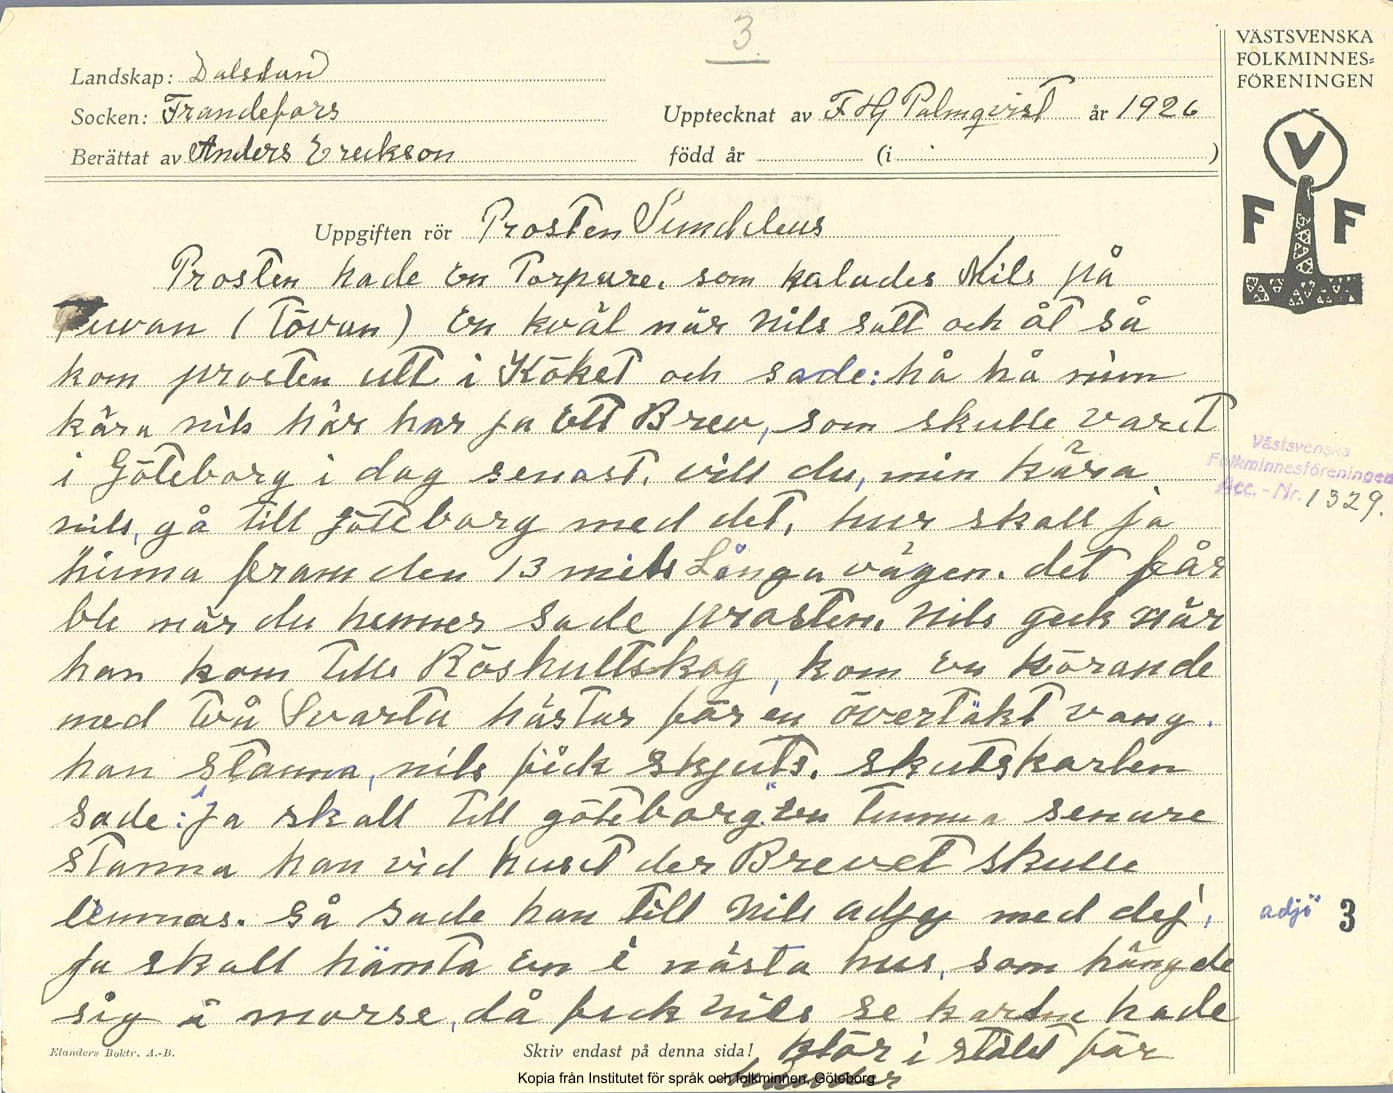 3.
VÄSTSVENSKA
FOLKMINNES=
FÖRENINGEN
Landskap: Dalsland
Socken: Frändefors
Upptecknat av F Hj Palmqvist år 1926
Berättat av Anders Erickson
född år (i )
V
F F
Uppgiften rör Prosten Sundelius
Prosten hade En Torpare, som kalades Nils på
Tuvan (Tövan) En kväl när Nils satt och åt så
kom prosten utt i Köket och sade: hå hå min
kära nils här har ja Ett Brev, som skulle varit
i Göteborg i dag senast. vill du, min kära
nils, gå till Göteborg med det, hur skall ja
hinna fram den 13 mils Långa vägen. det får
bli när du hinner sade prosten. Nils geck när
han kom till Röshultskog, kom En körande
med två Svarta hästar för en övertäkt vang.
han stanna, nils fick skjuts. skutskarlen
sade: "Ja skall till göteborg." En timma senare
stanna han vid huset der Brevet skulle
lemnas. så sade han till Nils adjy med dej,
ja skall hämta En i nästa hus, som hängde
sig i morse, då fick Nils se karlen hade
klör i stälet för
händer
Västsvenska
Folkminnesföreningen
Acc. - Nr. 1329.
adjö
3
Elanders Boktr. A.-B.
Skriv endast på denna sida!
Kopia från Institutet för språk och folkminnen, Göteborg